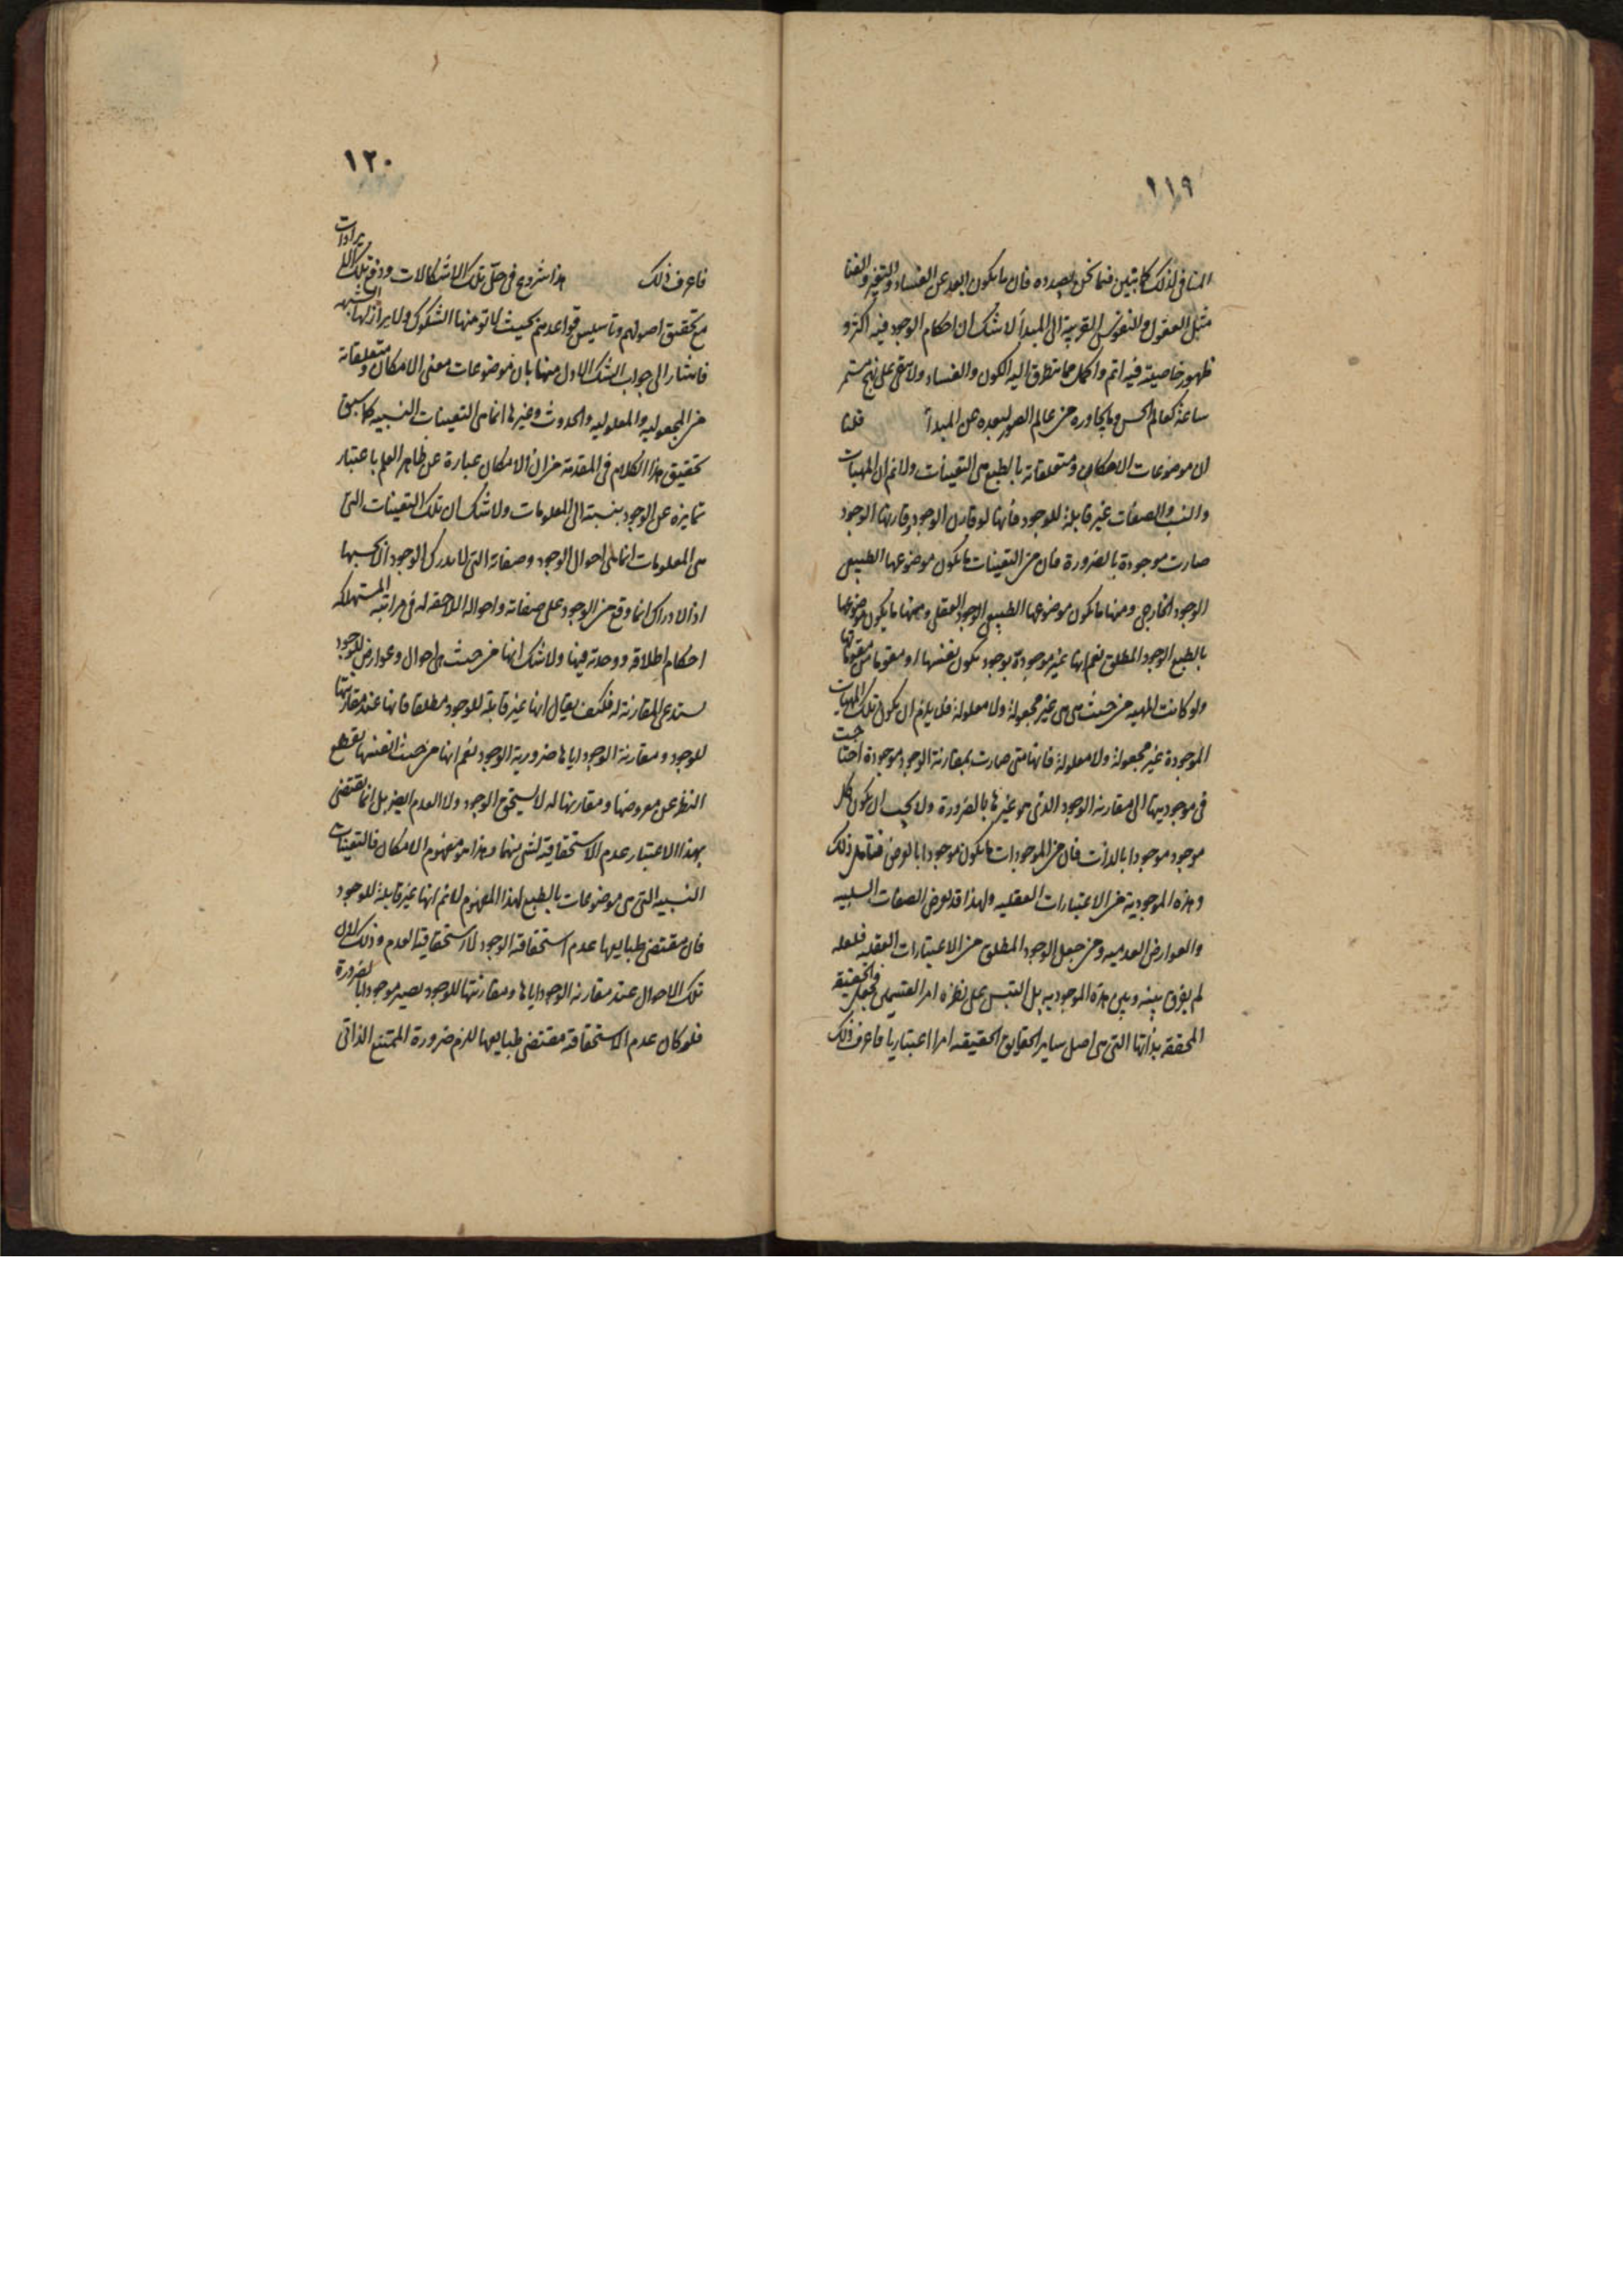 ١١٩
المنافى لذلك كما تبين فيما نحن بصدده فان ما يكون ابعد عن الفساد والتغير والفنا
مثل العقول والنفوس القريبة الى المبدأ لا شك ان احكام الوجود فيه اكثر و
ظهور خاصيته فيه اتم واكمل مما يتطرق اليه الكون والفساد ولا يبقى على نهج مستمر
ساعة كعالم الحس وما يجاوره من عالم الصور لبعده عن المبدأ قلنا
ان موضوعات الامكان ومتعلقاته بالطبع هى التعينات ولا نم ان المهيات
والنسب والصفات غير قابلة للوجود فانها لو قارن الوجود وقارنها الوجود
صارت موجودة بالضرورة فان من التعينات ما يكون موضوعها الطبيعى
الوجود الخارجى ومنها ما يكون موضوعها الطبيعى الوجود العقلى ومنها ما يكون موضوعها
بالطبع الوجود المطلق نعم انها غير موجودة بوجود يكون نفسها او مقوما من مقوماتها
ولو كانت المهيه من حيث هى هى غير مجعولة ولا معلولة فلا يلزم ان يكون تلك المهيات
الموجودة غير مجعولة ولا معلولة فانها متى صارت بمقارنة الوجود موجودة احتاجت
فى موجوديتها الى مقارنه الوجود الذى هو غيرها بالضرورة ولا يجب ان يكون كل
موجود موجودا بالذات فان من الموجودات ما يكون موجودا بالعرض فتأمل ذلك
وهذه الموجودية من الاعتبارات العقليه ولهذا قد تعرض الصفات السلبيه
والعوارض العدميه ومن جعل الوجود المطلق من الاعتبارات العقليه فلعله
لم يفرق بينه وبين هذه الموجوديه بل التبس على نظره امر القسمين فجعل الحقيقة
المحققه بذاتها التى هى اصل ساير الحقايق الحقيقيه امرا اعتباريا فاعرف ذلك
١٢٠
فاعرف ذلك هذا شروع فى حل تلك الاشكالات ودفع تلك الايرادات
مع تحقيق اصولهم وتأسيس قواعدهم بحيث لا تومنها الشكوك ولا يزلزلها الشبه
فاشار الى جواب الشك الاول منها بان موضوعات معنى الامكان ومتعلقاته
من المجعوليه والمعلوليه والحدوث وغيرها انما هى التعينات النسبيه كما سبق
تحقيق هذا الكلام فى المقدمة من ان الامكان عبارة عن ظاهر العلم باعتبار
تمايزه عن الوجود بنسبته الى المعلومات ولا شك ان تلك التعينات التى
هى المعلومات انما هى احوال الوجود وصفاته التى لا يدرك الوجود الا بحسبها
اذ الادراك انما وقع من الوجود على صفاته واحواله اللاحقه له فى مراتبه المستهلكه
احكام اطلاقه ووحدته فيها ولا شك انها من حيث هى احوال وعوارض للوجود
يستدعى المقارنة له فكيف يقال انها غير قابلة للوجود مطلقا فانها عند مقارنتها
للوجود ومقارنة الوجود اياها ضرورية الوجود نعم انها من حيث انفسها بقطع
النظر عن معروضها ومقارنها له لا يستحق الوجود ولا العدم ايضا بل انما يقتضى
بهذا الاعتبار عدم الاستحقاقية لشى منهما وهذا هو مفهوم الامكان فالتعينات
النسبيه التى هى موضوعات بالطبع لهذا المفهوم لا نم انها غير قابلة للوجود
فان مقتضى طبايعها عدم استحقاقية الوجود لا استحقاقية العدم وذلك لان
تلك الاحوال عند مقارنة الوجود اياها ومقارنتها للوجود يصير موجودا بالضرورة
فلو كان عدم الاستحقاقة مقتضى طبايعها للزم ضرورة الممتنع الذاتى